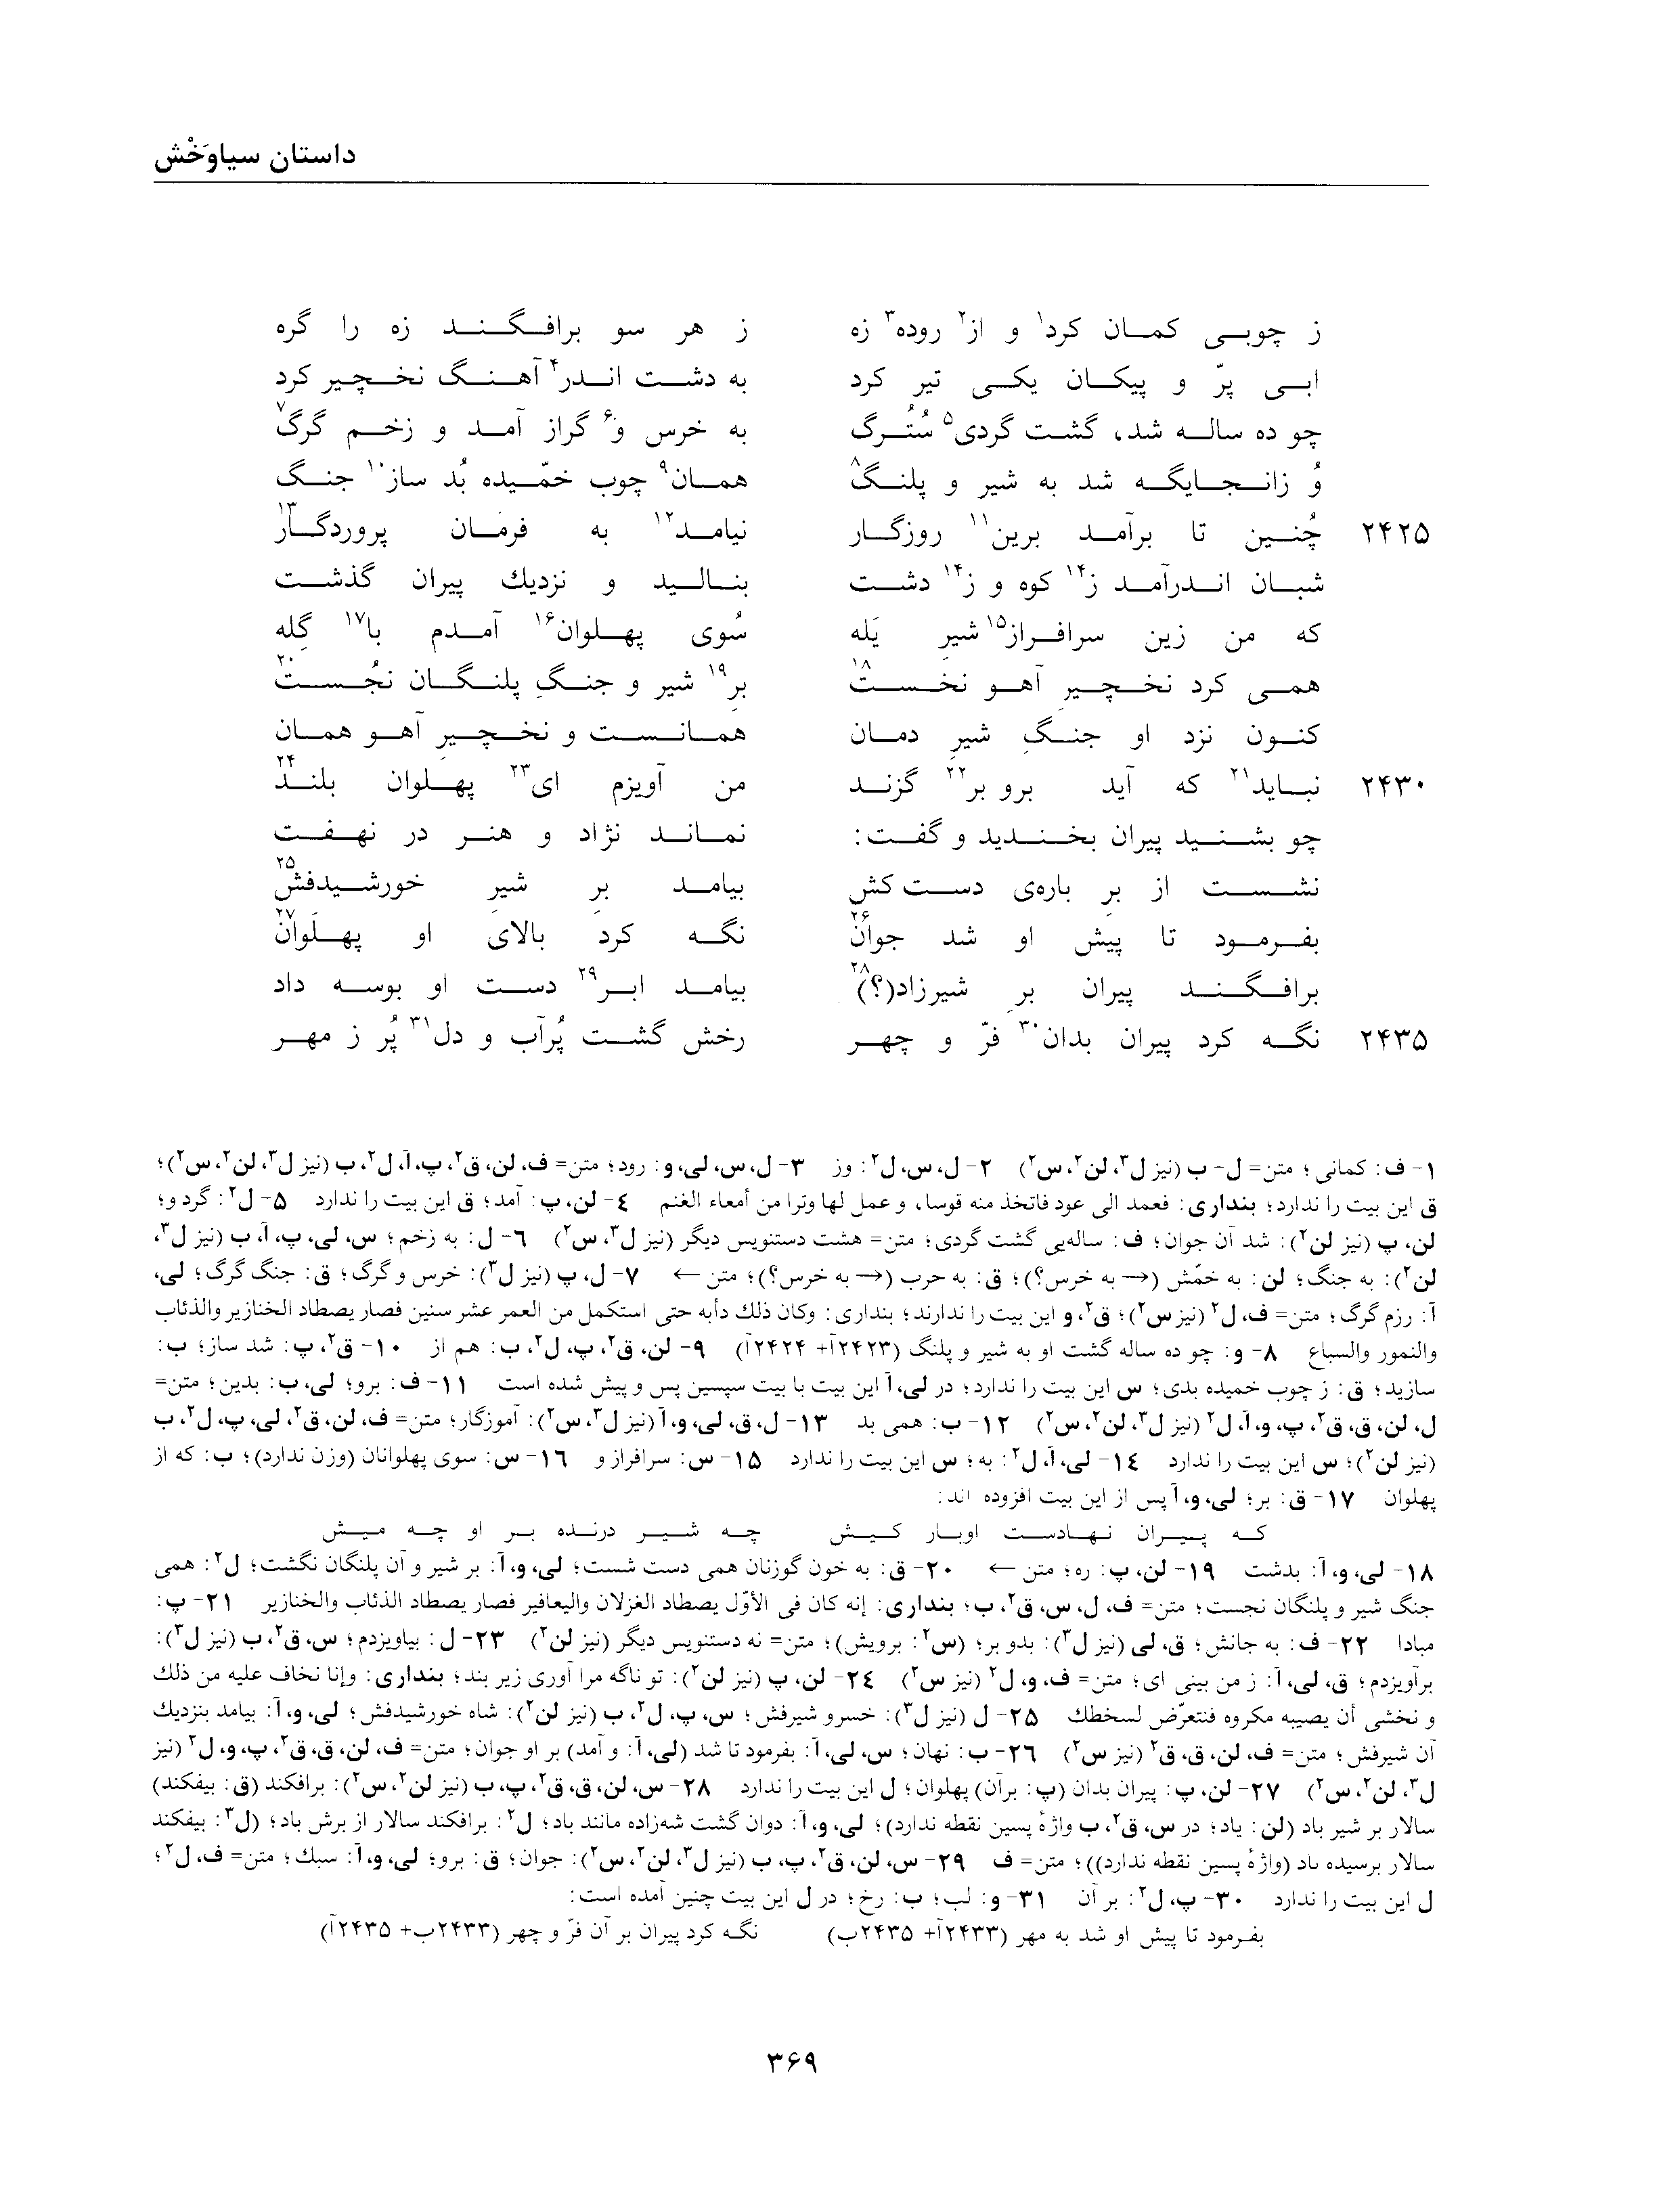 داستان سیاوَخْش
ز چوبی کمان کرد۱ و از۲ روده۳ زه ز هر سو برافگند زه را گره
ابی پرّ و پیکان یکی تیر کرد به دشت اندر۴ آهنگ نخچیر کرد
چو ده ساله شد، گشت گردی۵ سُتُرگ به خرس و۶ گراز آمد و زخم گرگ۷
وُ زانجایگه شد به شیر و پلنگ۸ همان۹ چوب خمّیده بُد ساز۱۰ جنگ
۲۴۲۵ چُنین تا برآمد برین۱۱ روزگار نیامد۱۲ به فرمان پروردگار۱۳
شبان اندرآمد ز۱۴ کوه و ز۱۴ دشت بنالید و نزدیك پیران گذشت
که من زین سرافراز۱۵ شیرِ یَله سُوی پهلوان۱۶ آمدم با۱۷ گِله
همی کرد نخچیرِ آهو نخست۱۸ برِ۱۹ شیر و جنگِ پلنگان نجُست۲۰
کنون نزد او جنگِ شیرِ دمان همانست و نخچیرِ آهو همان
۲۴۳۰ نباید۲۱ که آید برو بر۲۲ گزند من آویزم ای۲۳ پهلوان بلند۲۴
چو بشنید پیران بخندید و گفت: نماند نژاد و هنر در نهفت
نشست از برِ باره‌ی دست کش بیامد برِ شیرِ خورشیدفش۲۵
بفرمود تا پیش او شد جوان۲۶ نگه کرد بالای او پهلَوان۲۷
برافگند پیران برِ شیرزاد(؟)۲۸ بیامد ابر۲۹ دست او بوسه داد
۲۴۳۵ نگه کرد پیران بدان۳۰ فرّ و چهر رخش گشت پُرآب و دل۳۱ پُر ز مهر
۱- ف: کمانی؛ متن= ل- ب (نیز ل۳، لن۲، س۲) ۲- ل، س، ل۲: وز ۳- ل، س، لی، و: رود؛ متن= ف، لن، ق۲، پ، آ، ل۲، ب (نیز ل۳، لن۲، س۲)؛
ق این بیت را ندارد؛ بنداری: فعمد الی عود فاتخذ منه قوسا، و عمل لها وترا من أمعاء الغنم ٤- لن، پ: آمد؛ ق این بیت را ندارد ۵- ل۲: گرد و؛
لن، پ (نیز لن۲): شد آن جوان؛ ف: ساله‌یی گشت گردی؛ متن= هشت دستنویس دیگر (نیز ل۳، س۲) ٦- ل: به زخم؛ س، لی، پ، آ، ب (نیز ل۳،
لن۲): به جنگ؛ لن: به خمّش (← به خرس؟)؛ ق: به حرب (← به خرس؟)؛ متن ← ۷- ل، پ (نیز ل۳): خرس و گرگ؛ ق: جنگ گرگ؛ لی،
آ: رزم گرگ؛ متن= ف، ل۲ (نیز س۲)؛ ق۲، و این بیت را ندارند؛ بنداری: وکان ذلك دأبه حتی استکمل من العمر عشر سنین فصار یصطاد الخنازیر والذئاب
والنمور والسباع ۸- و: چو ده ساله گشت او به شیر و پلنگ (۲۴۲۳آ+ ۲۴۲۴آ) ۹- لن، ق۲، پ، ل۲، ب: هم از ۱۰- ق۲، پ: شد ساز؛ ب:
سازید؛ ق: ز چوب خمیده بدی؛ س این بیت را ندارد؛ در لی، آ این بیت با بیت سپسین پس و پیش شده است ۱۱- ف: برو؛ لی، ب: بدین؛ متن=
ل، لن، ق، ق۲، پ، و، آ، ل۲ (نیز ل۳، لن۲، س۲) ۱۲- ب: همی بد ۱۳- ل، ق، لی، و، آ (نیز ل۳، س۲): آموزگار؛ متن= ف، لن، ق۲، لی، پ، ل۲، ب
(نیز لن۲)؛ س این بیت را ندارد ۱٤- لی، آ، ل۲: به؛ س این بیت را ندارد ۱۵- س: سرافراز و ۱٦- س: سوی پهلوانان (وزن ندارد)؛ ب: که از
پهلوان ۱۷- ق: بر؛ لی، و، آ پس از این بیت افزوده اند:
که پیران نهادست اوبار کیش چه شیر درنده بر او چه میش
۱۸- لی، و، آ: بدشت ۱۹- لن، پ: ره؛ متن ← ۲۰- ق: به خون گوزنان همی دست شست؛ لی، و، آ: بر شیر و آن پلنگان نگشت؛ ل۲: همی
جنگ شیر و پلنگان نجست؛ متن= ف، ل، س، ق۲، ب؛ بنداری: إنه کان فی الأوّل یصطاد الغزلان والیعافیر فصار یصطاد الذئاب والخنازیر ۲۱- پ:
مبادا ۲۲- ف: به جانش؛ ق، لی (نیز ل۳): بدو بر؛ (س۲: برویش)؛ متن= نه دستنویس دیگر (نیز لن۲) ۲۳- ل: بیاویزدم؛ س، ق۲، ب (نیز ل۳):
برآویزدم؛ ق، لی، آ: ز من بینی ای؛ متن= ف، و، ل۲ (نیز س۲) ۲٤- لن، پ (نیز لن۲): تو ناگه مرا آوری زیر بند؛ بنداری: وإنا نخاف علیه من ذلك
و نخشی أن یصیبه مکروه فنتعرّض لسخطك ۲۵- ل (نیز ل۳): خسرو شیرفش؛ س، پ، ل۲، ب (نیز لن۲): شاه خورشیدفش؛ لی، و، آ: بیامد بنزدیك
آن شیرفش؛ متن= ف، لن، ق، ق۲ (نیز س۲) ۲٦- ب: نهان؛ س، لی، آ: بفرمود تا شد (لی، آ: و آمد) بر او جوان؛ متن= ف، لن، ق، ق۲، پ، و، ل۲ (نیز
ل۳، لن۲، س۲) ۲۷- لن، پ: پیران بدان (پ: برآن) پهلوان؛ ل این بیت را ندارد ۲۸- س، لن، ق، ق۲، پ، ب (نیز لن۲، س۲): برافکند (ق: بیفکند)
سالار بر شیر باد (لن: یاد؛ در س، ق۲، ب واژهٔ پسین نقطه ندارد)؛ لی، و، آ: دوان گشت شه‌زاده مانند باد؛ ل۲: برافکند سالار از برش باد؛ (ل۳: بیفکند
سالار برسیده ٮاد (واژهٔ پسین نقطه ندارد))؛ متن= ف ۲۹- س، لن، ق۲، پ، ب (نیز ل۳، لن۲، س۲): جوان؛ ق: برو؛ لی، و، آ: سبك؛ متن= ف، ل۲؛
ل این بیت را ندارد ۳۰- پ، ل۲: بر آن ۳۱- و: لب؛ ب: رخ؛ در ل این بیت چنین آمده است:
بفرمود تا پیش او شد به مهر (۲۴۳۳آ+ ۲۴۳۵ب) نگه کرد پیران بر آن فرّ و چهر (۲۴۳۳ب+ ۲۴۳۵آ)
۳۶۹